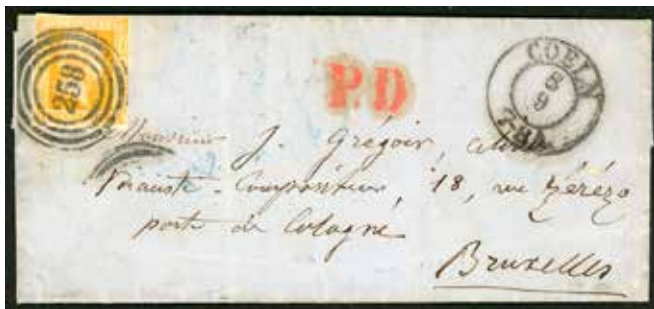 258
P.D
COELN
8
9
Monsieur J. Grégoir,
Pianiste-Compositeur, 18, rue Zérézo
porte de Cologne
Bruxelles